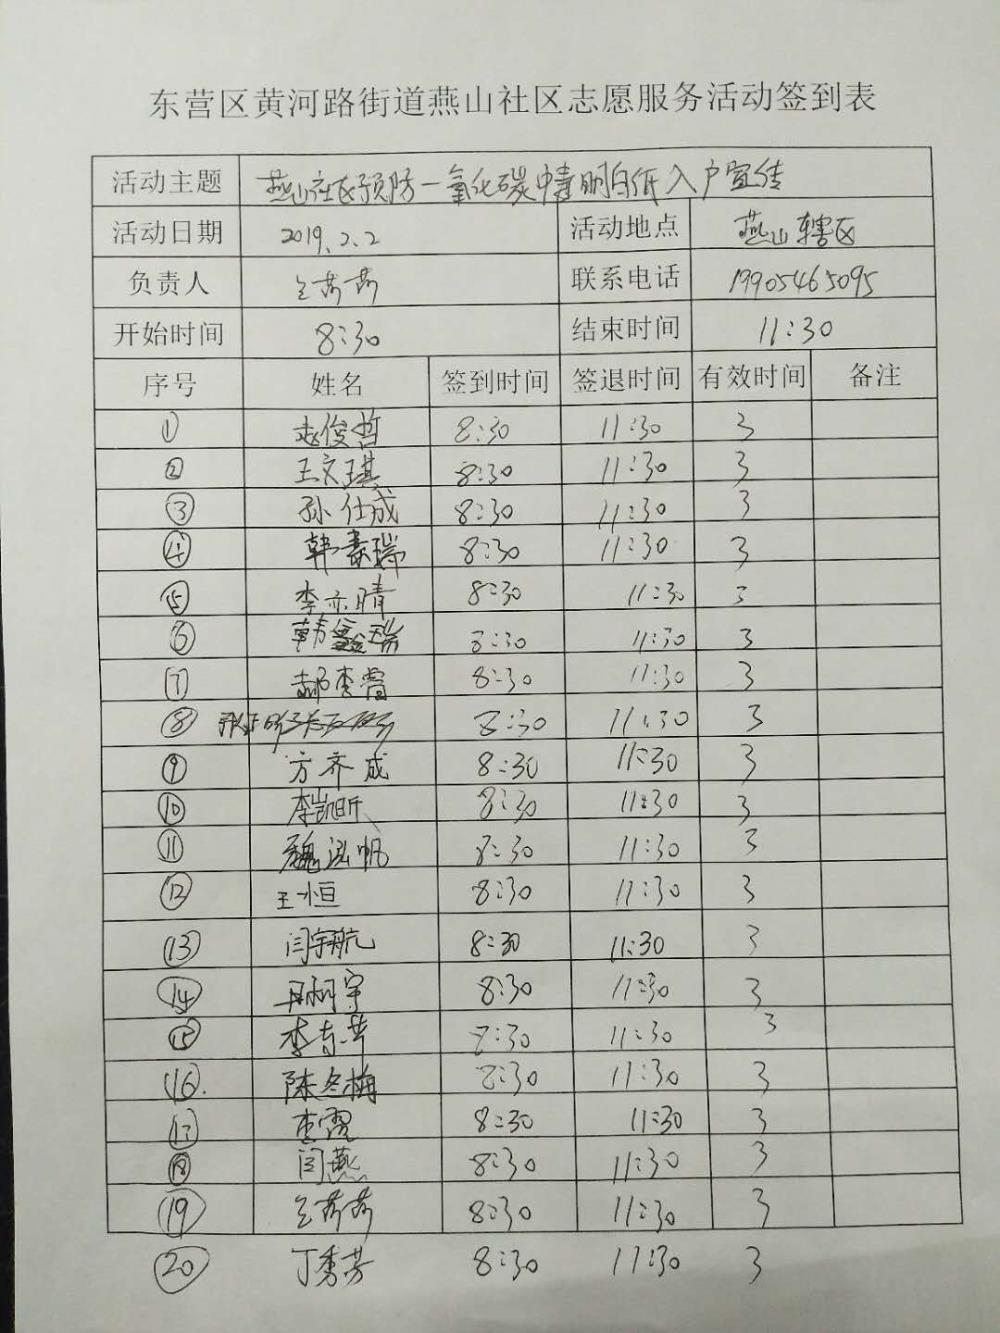 东营区黄河路街道燕山社区志愿服务活动签到表
活动主题 燕山社区预防一氧化碳中毒明白纸入户宣传
活动日期 2019.2.2 活动地点 燕山辖区
负责人 联系电话 19905465095
开始时间 8:30 结束时间 11:30
序号 姓名 签到时间 签退时间 有效时间 备注
① 赵俊哲 8:30 11:30 3
② 王文琪 8:30 11:30 3
③ 孙仕成 8:30 11:30 3
④ 韩 瑞 8:30 11:30 3
⑤ 李亦晴 8:30 11:30 3
⑥ 韩鑫瑞 8:30 11:30 3
⑦ 郝李 8:30 11:30 3
⑧ 8:30 11:30 3
⑨ 方齐成 8:30 11:30 3
⑩ 李凯昕 8:30 11:30 3
⑪ 魏泓帆 8:30 11:30 3
⑫ 王恒 8:30 11:30 3
⑬ 闫宇航 8:30 11:30 3
⑭ 宇 8:30 11:30 3
⑮ 李 8:30 11:30 3
⑯. 陈冬梅 8:30 11:30 3
⑰ 李霞 8:30 11:30 3
⑱ 闫燕 8:30 11:30 3
⑲ 8:30 11:30 3
⑳ 丁秀芳 8:30 11:30 3